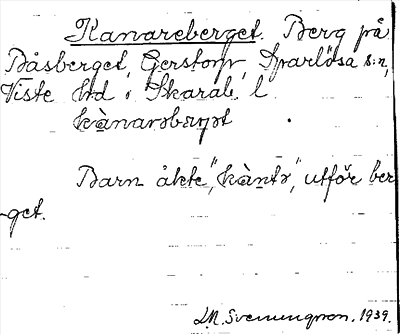 Kanareberget. Berg på
Båsberget, Gerstorp, Sparlösa s:n,
Viste hd i Skarab. l.
kànarəbærjət
Barn åkte "kàntə", utför ber
-get.
J.N. Svenungsson. 1939.